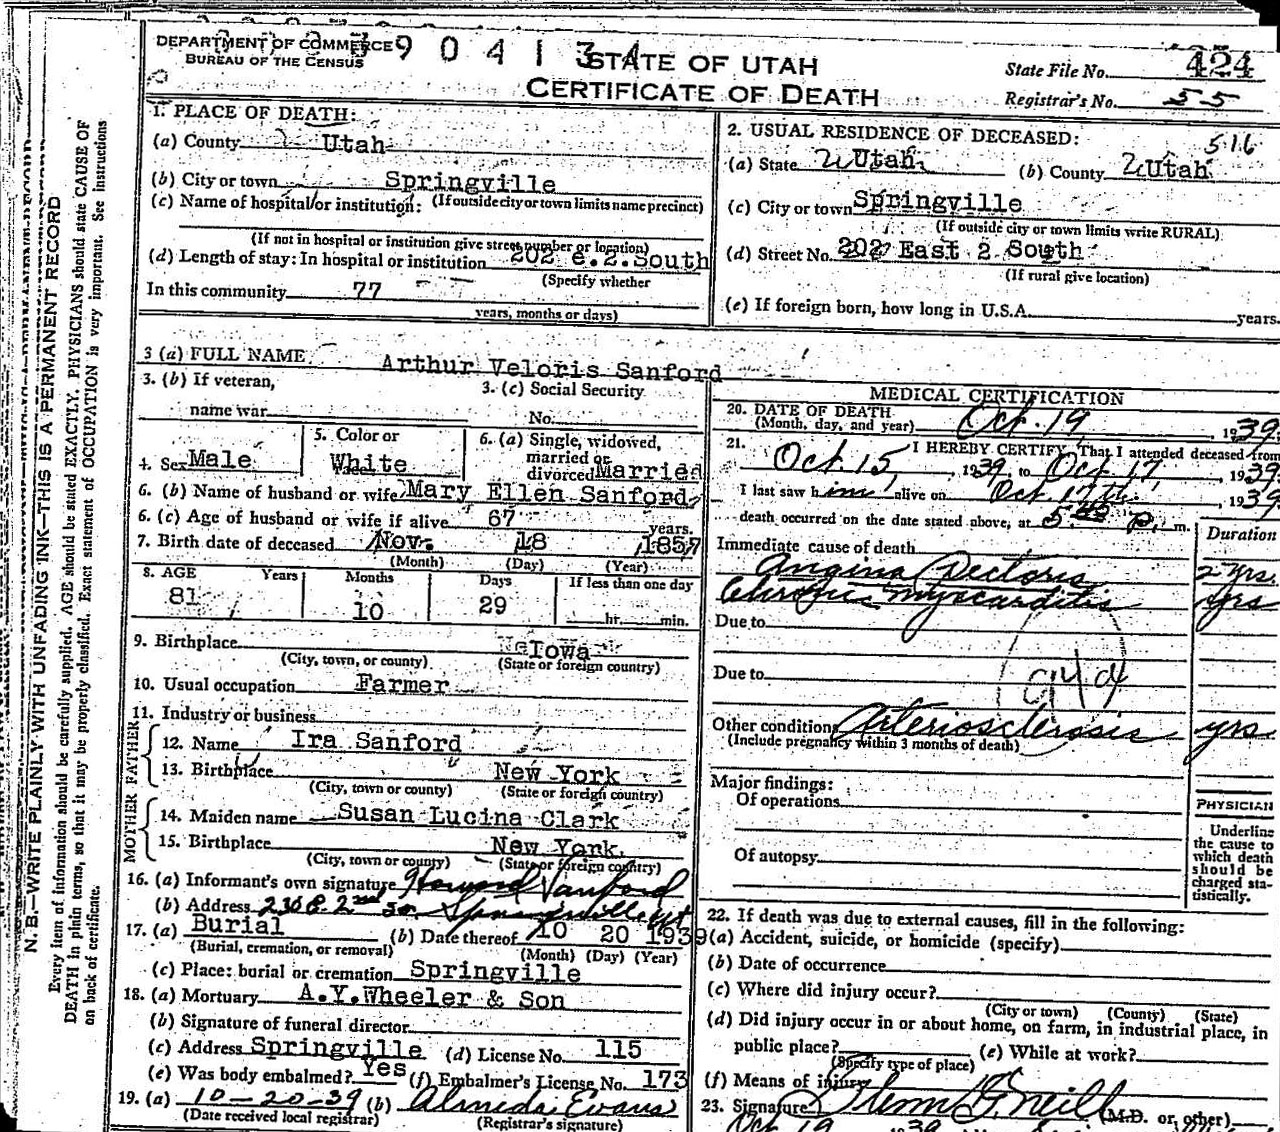 DEPARTMENT OF COMMERCE
BUREAU OF THE CENSUS
STATE OF UTAH
CERTIFICATE OF DEATH
State File No. 424
Registrar's No. 55
1. PLACE OF DEATH:
(a) County Utah
(b) City or town Springville
(c) Name of hospital or institution: (If outside city or town limits name precinct)
(If not in hospital or institution give street number or location)
(d) Length of stay: In hospital or institution 202 e. 2. South
(Specify whether
In this community 77
years, months or days)
2. USUAL RESIDENCE OF DECEASED:
516
(a) State Utah (b) County Utah
(c) City or town Springville
(If outside city or town limits write RURAL)
(d) Street No. 202 East 2 South
(If rural give location)
(e) If foreign born, how long in U.S.A. years.
3 (a) FULL NAME Arthur Veloris Sanford
3. (b) If veteran,
name war
3. (c) Social Security
No.
4. Sex Male
5. Color or
White
6. (a) Single, widowed,
married or
divorced Married
6. (b) Name of husband or wife Mary Ellen Sanford
6. (c) Age of husband or wife if alive 67 years.
7. Birth date of deceased Nov. 18 1857
(Month) (Day) (Year)
8. AGE Years Months Days If less than one day
81 10 29 hr. min.
9. Birthplace Iowa
(City, town, or county) (State or foreign country)
10. Usual occupation Farmer
11. Industry or business
FATHER
12. Name Ira Sanford
13. Birthplace New York
(City, town or county) (State or foreign country)
MOTHER
14. Maiden name Susan Lucina Clark
15. Birthplace New York.
(City, town or county) (State or foreign country)
16. (a) Informant's own signature Howard Sanford
(b) Address 2nd So. Springville Ut
17. (a) Burial (b) Date thereof 10 20 1939
(Burial, cremation, or removal) (Month) (Day) (Year)
(c) Place: burial or cremation Springville
18. (a) Mortuary A.Y. Wheeler & Son
(b) Signature of funeral director
(c) Address Springville (d) License No. 115
(e) Was body embalmed? Yes (f) Embalmer's License No. 173
19. (a) 10-20-39 (b) Almeda Evans
(Date received local registrar) (Registrar's signature)
MEDICAL CERTIFICATION
20. DATE OF DEATH Oct. 19, 1939
(Month, day, and year)
21. I HEREBY CERTIFY, That I attended deceased from
Oct. 15, 1939 to Oct 17, 1939
I last saw him alive on Oct 17th, 1939
death occurred on the date stated above, at P. m.
Duration
Immediate cause of death
Angina Pectoris 2 yrs.
Chronic myocarditis yrs
Due to
Due to
94 d
Other conditions Arteriosclerosis yrs
(Include pregnancy within 3 months of death)
Major findings:
Of operations
Of autopsy
PHYSICIAN
Underline
the cause to
which death
should be
charged sta-
tistically.
22. If death was due to external causes, fill in the following:
(a) Accident, suicide, or homicide (specify)
(b) Date of occurrence
(c) Where did injury occur?
(City or town) (County) (State)
(d) Did injury occur in or about home, on farm, in industrial place, in
public place? (e) While at work?
(Specify type of place)
(f) Means of injury
23. Signature (M.D. or other)
Oct 19 1939
N. B.—WRITE PLAINLY WITH UNFADING INK—THIS IS A PERMANENT RECORD
Every item of information should be carefully supplied. AGE should be stated EXACTLY. PHYSICIANS should state CAUSE OF
DEATH in plain terms, so that it may be properly classified. Exact statement of OCCUPATION is very important. See Instructions
on back of certificate.